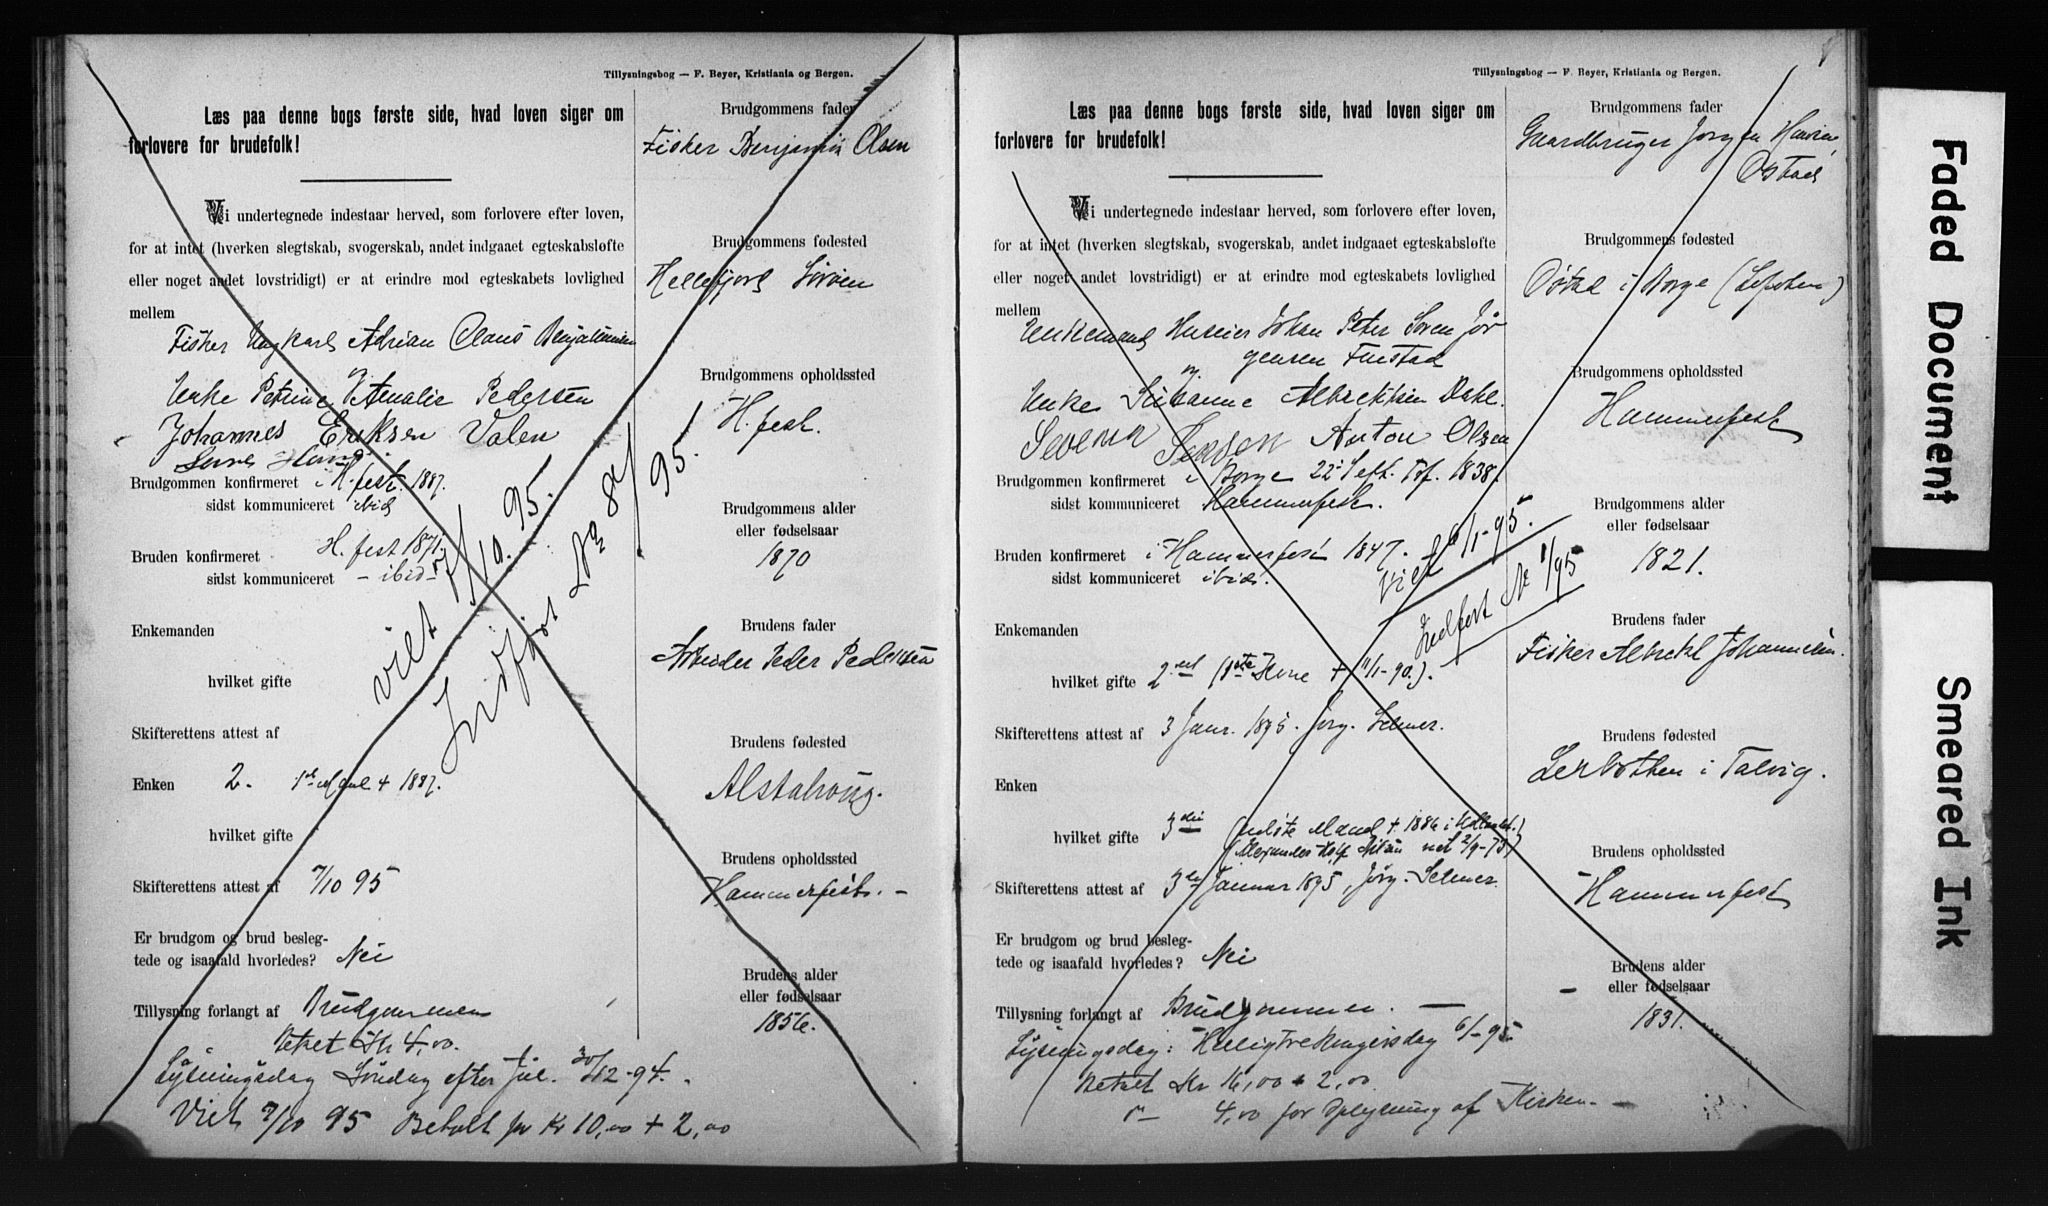 Tillysningsbog — F. Beyer, Kristiania og Bergen.
Læs paa denne bogs første side, hvad loven siger om
forlovere for brudefolk!
Vi undertegnede indestaar herved, som forlovere efter loven,
for at intet (hverken slegtskab, svogerskab, andet indgaaet egteskabsløfte
eller noget andet lovstridigt) er at erindre mod egteskabets lovlighed
mellem
Fisker Ungkarl Adrian Olaus Benjaminsen
og
Enke Petrine Amalie Pedersen
Johannes Eriksen Valen
Brudgommen konfirmeret i H.fest. 1887.
sidst kommuniceret ibid
Bruden konfirmeret H. fest 1871
sidst kommuniceret – ibid –
Enkemanden
hvilket gifte
Skifterettens attest af
Enken 2. 1ste Mand + 1887.
hvilket gifte
Skifterettens attest af 7/10 95
Er brudgom og brud beslegtede
og isaafald hvorledes? Nei
Tillysning forlangt af Brudgommen
Betalt Kr 4,00.
Lysningsdag Søndag efter Jul. 30/12-94.
Viet 7/10 95 Betalt for Kr 10,00 + 2,00
viet 7/10. 95.
Indført No 84/95.
Brudgommens fader
Fisker Benjamin Olsen
Brudgommens fødested
Hellefjord Sørøen
Brudgommens opholdssted
H.fest.
Brudgommens alder
eller fødselsaar
1870
Brudens fader
Arbeider Peder Pedersen
Brudens fødested
Alstahoug.
Brudens opholdssted
Hammerfest. –
Brudens alder
eller fødselsaar
1856.
Tillysningsbog — F. Beyer, Kristiania og Bergen.
Læs paa denne bogs første side, hvad loven siger om
forlovere for brudefolk!
Vi undertegnede indestaar herved, som forlovere efter loven,
for at intet (hverken slegtskab, svogerskab, andet indgaaet egteskabsløfte
eller noget andet lovstridigt) er at erindre mod egteskabets lovlighed
mellem
Enkemand Huseier Johan Peter Søren Jør
gensen Finstad
og
Enke Susanne Albrektsen Dahl.
Severin Jensen Anton Olsen
Brudgommen konfirmeret i Borge 22 Sept. 1838.
sidst kommuniceret Hammerfest.
Bruden konfirmeret i Hammerfest 1847.
sidst kommuniceret ibid.
Viet 6/1-95.
Indført No 1/95
Enkemanden
hvilket gifte 2det (1ste Kone + 11/1-90.).
Skifterettens attest af 3 Janr. 1895. Jørg. Selmer.
Enken
hvilket gifte 3die (sidste Mand + 1886 i
Skifterettens attest af 3de Januar 1895, Jørg. Selmer.
Er brudgom og brud beslegtede
og isaafald hvorledes? Nei
Tillysning forlangt af Brudgommen. —
Lysningsdag: Helligtrekongersdag 6/1-95.
Betalt Kr 16,00 + 2,00
4,00 for Oplysning af Kirken. –
Brudgommens fader
Gaardbruger Jørgen
Brudgommens fødested
i Borge (Lofoten)
Brudgommens opholdssted
Hammerfest
Brudgommens alder
eller fødselsaar
1821.
Brudens fader
Fisker Albrekt Johannesen.
Brudens fødested
Lerbotten i Talvig.
Brudens opholdssted
Hammerfest
Brudens alder
eller fødselsaar
1831.
Faded Document
Smeared Ink